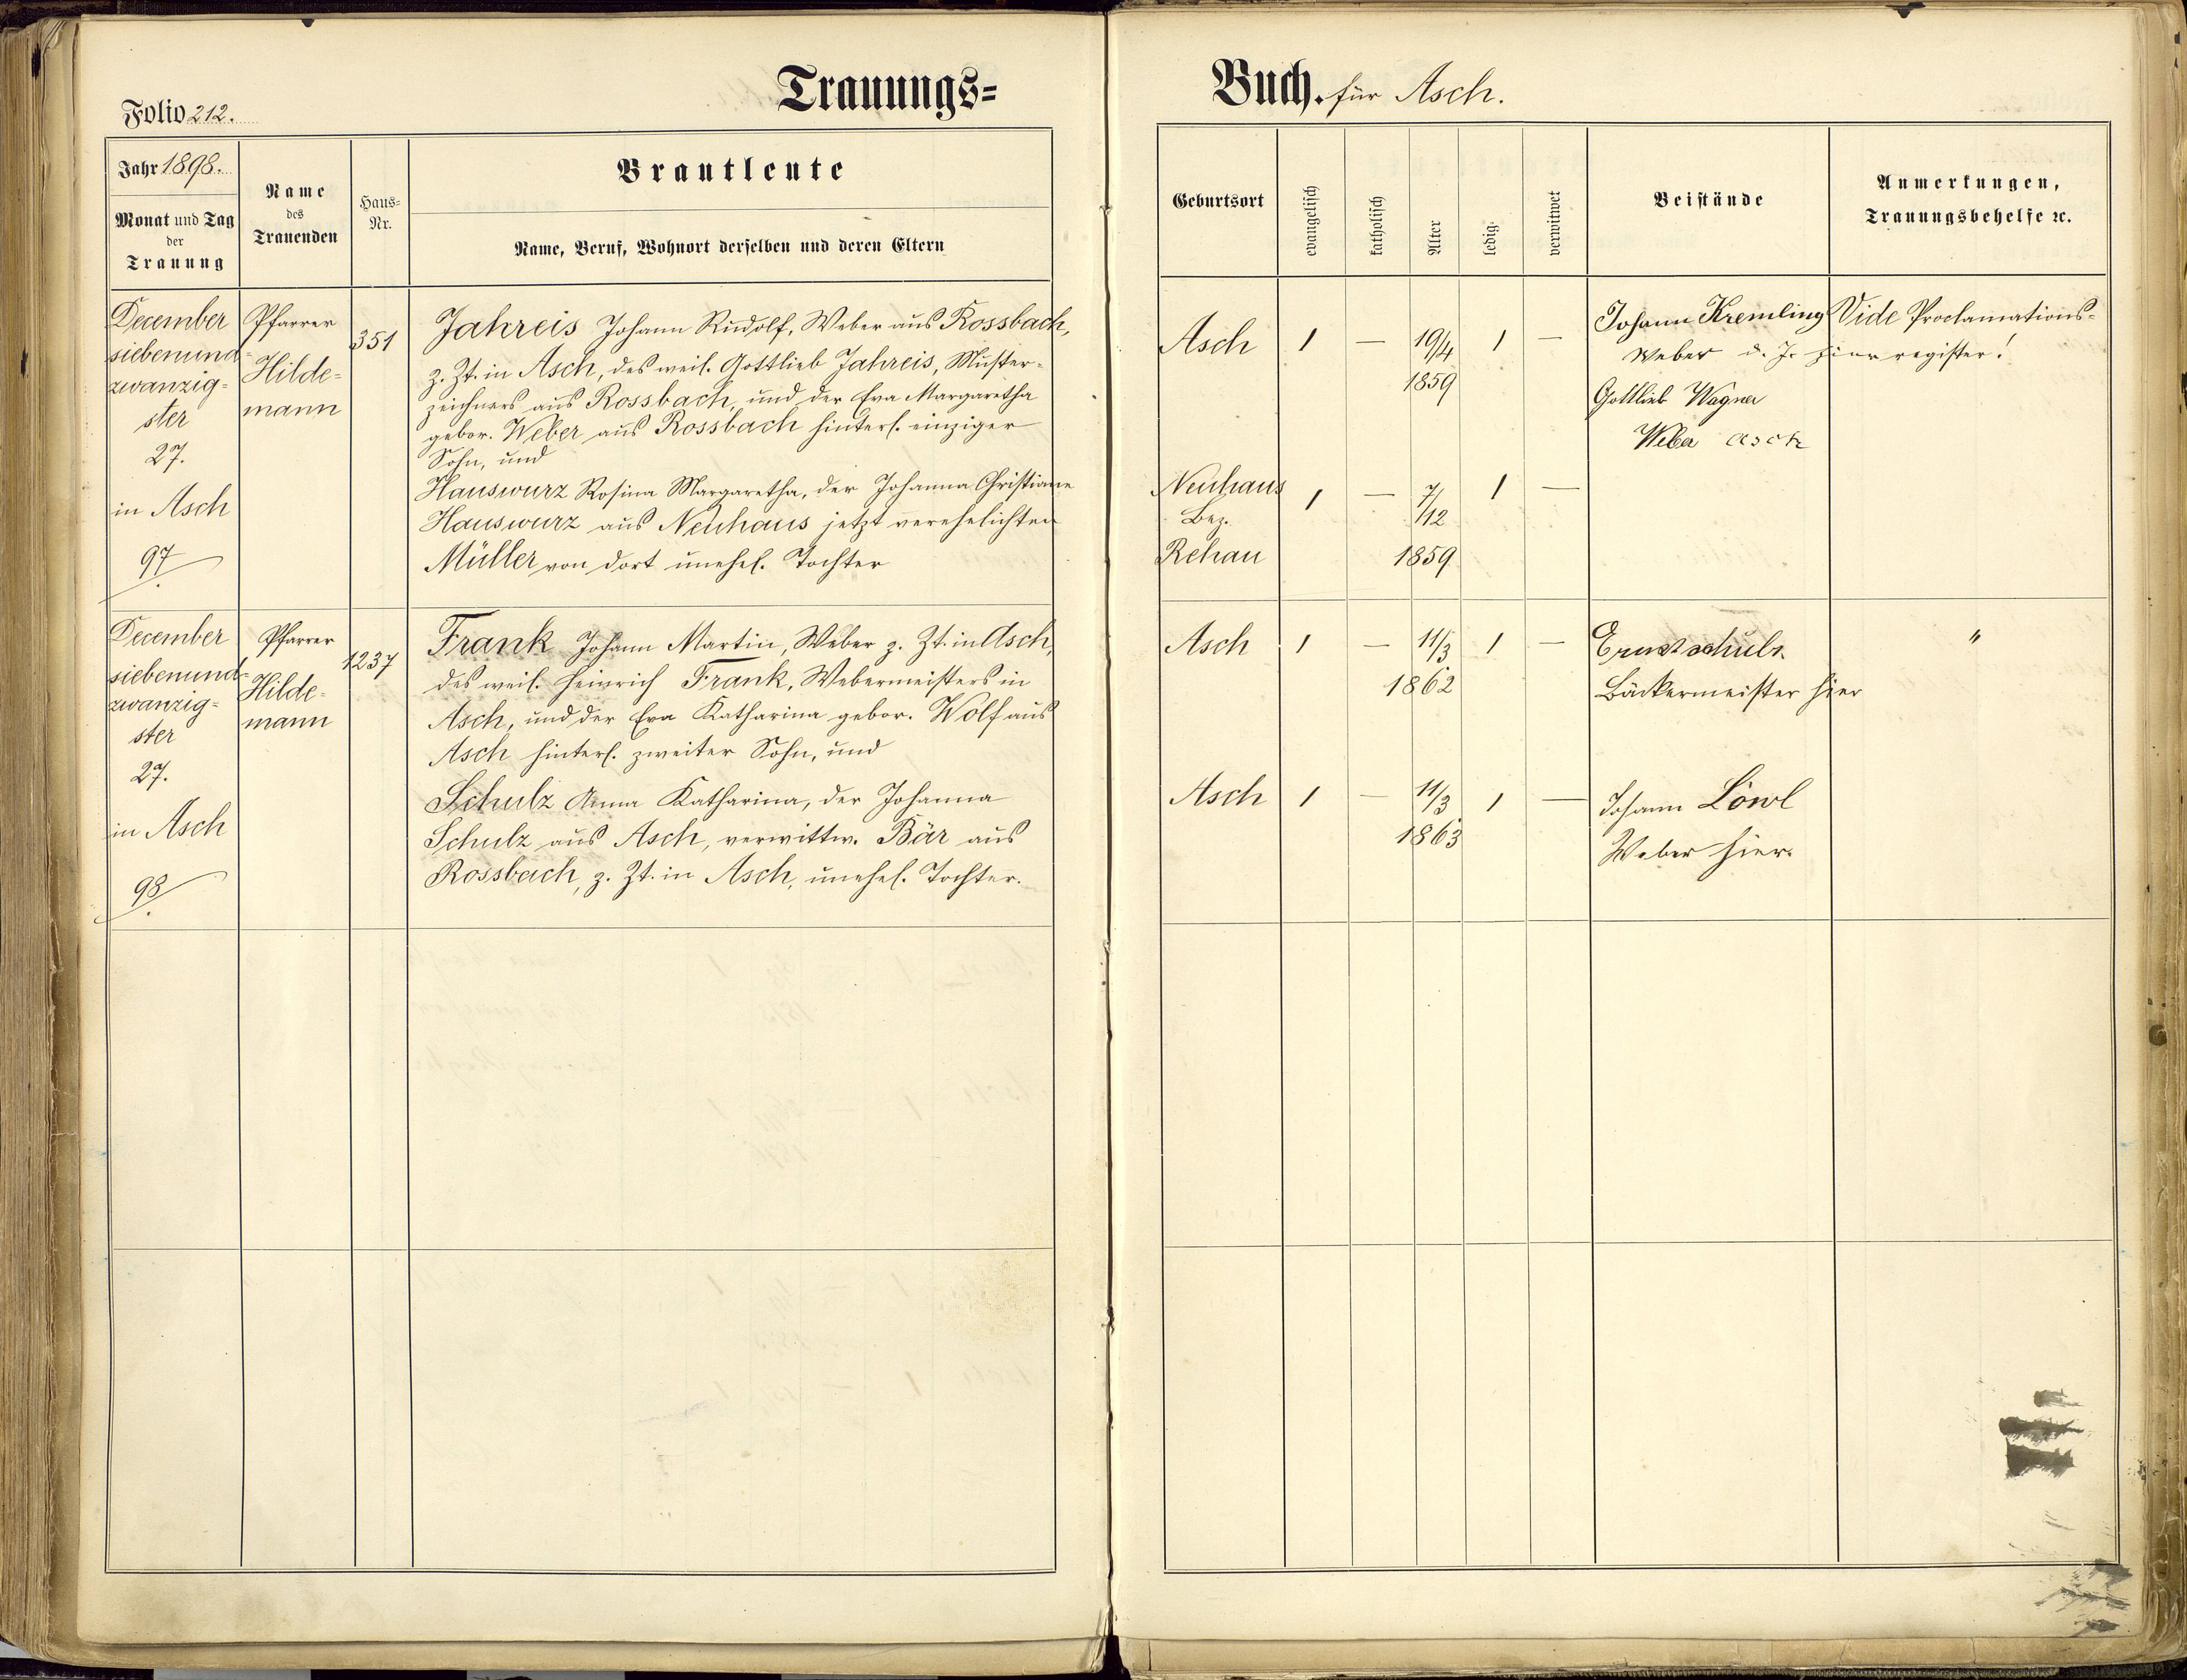 Folio 212.
Trauungs=
Jahr 1898.
Monat und Tag
der
Trauung
Name
des
Trauenden
Haus=
Nr.
Brautleute
Name, Beruf, Wohnort derselben und deren Eltern
December
siebenund=
zwanzig=
ster
27.
in Asch
97
Pfarrer
Hilde=
mann
351
Jahreis Johann Rudolf, Weber aus Rossbach,
z. Zt. in Asch, des weil. Gottlieb Jahreis, Muster=
zeichners aus Rossbach, und der Eva Margaretha
gebor. Weber aus Rossbach hinterl. einziger
Sohn, und
Hauswurz Rosina Margaretha, der Johanna Christiane
Hauswurz aus Neuhaus jetzt verehelichten
Müller von dort unehel. Tochter
December
siebenund=
zwanzig=
ster
27.
in Asch
98
Pfarrer
Hilde=
mann
1237
Frank Johann Martin, Weber z. Zt. in Asch,
des weil. Heinrich Frank, Webermeisters in
Asch, und der Eva Katharina gebor. Wolf aus
Asch hinterl. zweiter Sohn, und
Schulz Anna Katharina, der Johanna
Schulz aus Asch, verwittw. Bär aus
Rossbach, z. Zt. in Asch, unehel. Tochter.
Buch. für Asch.
Geburtsort
evangelisch
katholisch
Alter
ledig
verwitwet
Beistände
Anmerkungen,
Trauungsbehelfe ꝛc.
Asch 1 — 19/4 1 —
1859
Johann Kremling
Weber hier
Gottlieb Wagner
Weber Asch
Vide Proclamations=
register!
Neuhaus 1 — 7/12 1 —
Bez.
Rehau 1859
Asch 1 — 11/3 1 —
1862
Ernst Schulz
Bäckermeister hier
"
Asch 1 — 11/3 1 —
1863
Johann Löwl
Weber hier.